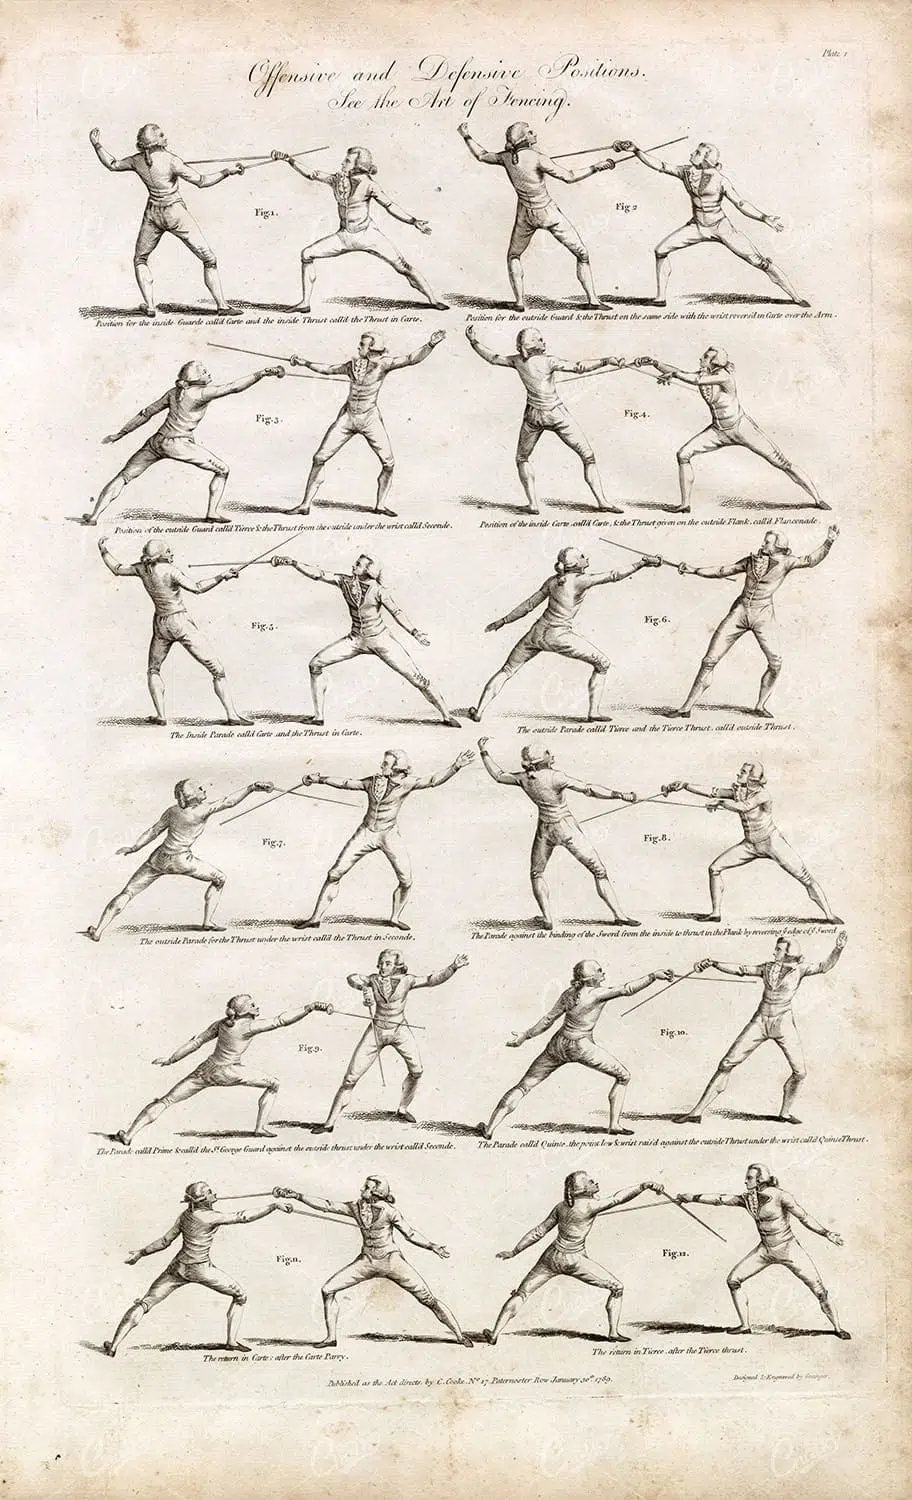 Plate 1
Offensive and Defensive Positions.
See the Art of Fencing.
Fig.1.
Position for the inside Guarde call'd Carte and the inside Thrust call'd the Thrust in Carte.
Fig 2
Position for the outside Guard & the Thrust on the same side with the wrist revers'd in Carte over the Arm.
Fig.3.
Position of the outside Guard call'd Tierce & the Thrust from the outside under the wrist call'd Seconde.
Fig.4.
Position of the inside Carte, call'd Carte, & the Thrust given on the outside Flank, call'd Flanconade.
Fig.5.
The Inside Parade call'd Carte and the Thrust in Carte.
Fig.6.
The outside Parade call'd Tierce and the Tierce Thrust, call'd outside Thrust.
Fig.7.
The outside Parade for the Thrust under the wrist call'd the Thrust in Seconde.
Fig.8.
The Parade against the binding of the Sword from the inside to thrust in the Flank by reversing ye edge of ye Sword
Fig.9.
The Parade call'd Prime & call'd the St George Guard against the outside thrust under the wrist call'd Seconde.
Fig.10.
The Parade call'd Quinte, the point low & wrist rais'd against the outside Thrust under the wrist call'd Quinte Thrust.
Fig.11.
The return in Carte, after the Carte Parry.
Fig.12.
The return in Tierce, after the Tierce thrust.
Published as the Act directs, by C. Cooke, No 17, Paternoster Row January 30th 1789.
Designed & Engraved by Grainger.